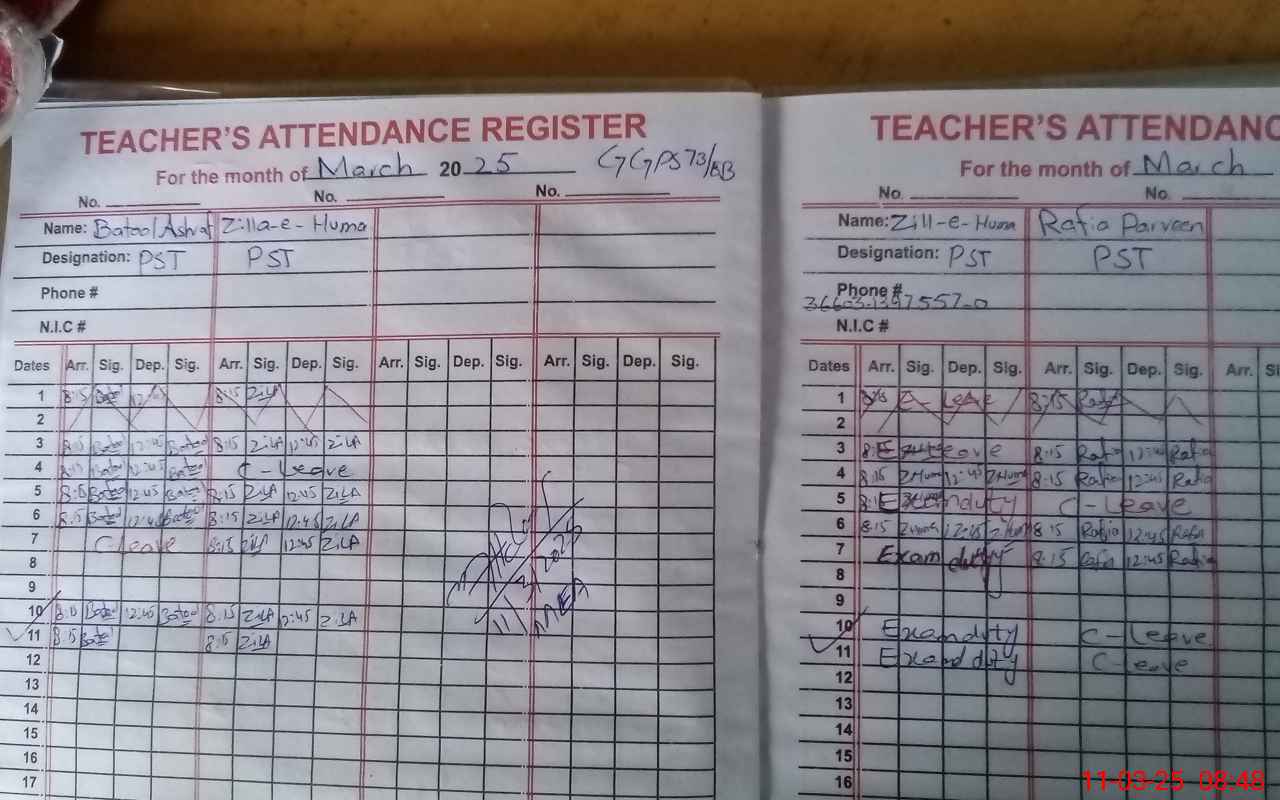 TEACHER'S ATTENDANCE REGISTER
For the month of March 2025 GGPS 73/EB
No. No. No.
Name: Batool Ashraf Zilla-e-Huma
Designation: PST PST
Phone #
N.I.C #
Dates Arr. Sig. Dep. Sig. Arr. Sig. Dep. Sig. Arr. Sig. Dep. Sig. Arr. Sig. Dep. Sig.
1 8:15 8:15 ZilA
2
3 8:15 Batool 12:45 Batool 8:15 ZilA 12:45 ZilA
4 8:15 Batool 12:45 Batool C-Leave
5 8:15 Batool 12:45 Batool 8:15 ZilA 12:45 ZilA
6 8:15 Batool 12:45 Batool 8:15 ZilA 12:45 ZilA
7 C-Leave 8:15 ZilA 12:45 ZilA
8
9
10 8:15 Batool 12:45 Batool 8:15 ZilA 12:45 ZilA
11 8:15 Batool 8:15 ZilA
12
13
14
15
16
17
11/3/2025
MEA
TEACHER'S ATTENDANC
For the month of March
No. No.
Name: Zill-e-Huma Rafia Parveen
Designation: PST PST
Phone #
N.I.C #
Dates Arr. Sig. Dep. Sig. Arr. Sig. Dep. Sig. Arr. Si
1 C-Leave 8:15 Rafia
2
3 Leave 8:15 Rafia 12:45 Rafia
4 8:15 ZHuma 12:45 ZHuma 8:15 Rafia 12:45 Rafia
5 Exam duty C-Leave
6 8:15 ZHuma 12:45 ZHuma 8:15 Rafia 12:45 Rafia
7 Exam duty 8:15 Rafia 12:45 Rafia
8
9
10 Exam duty C-Leave
11 Exam duty C-Leave
12
13
14
15
16
11-03-25 08:48